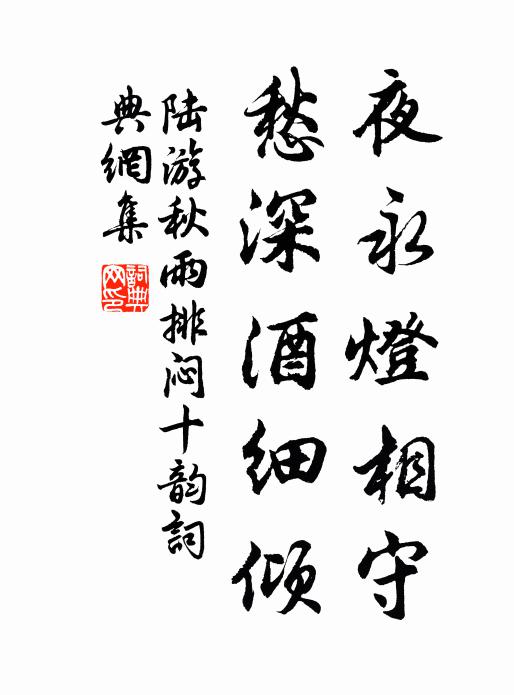 夜永燈相守
愁深酒细傾
陆游秋雨排闷十韵詞
典網集
詞典网印